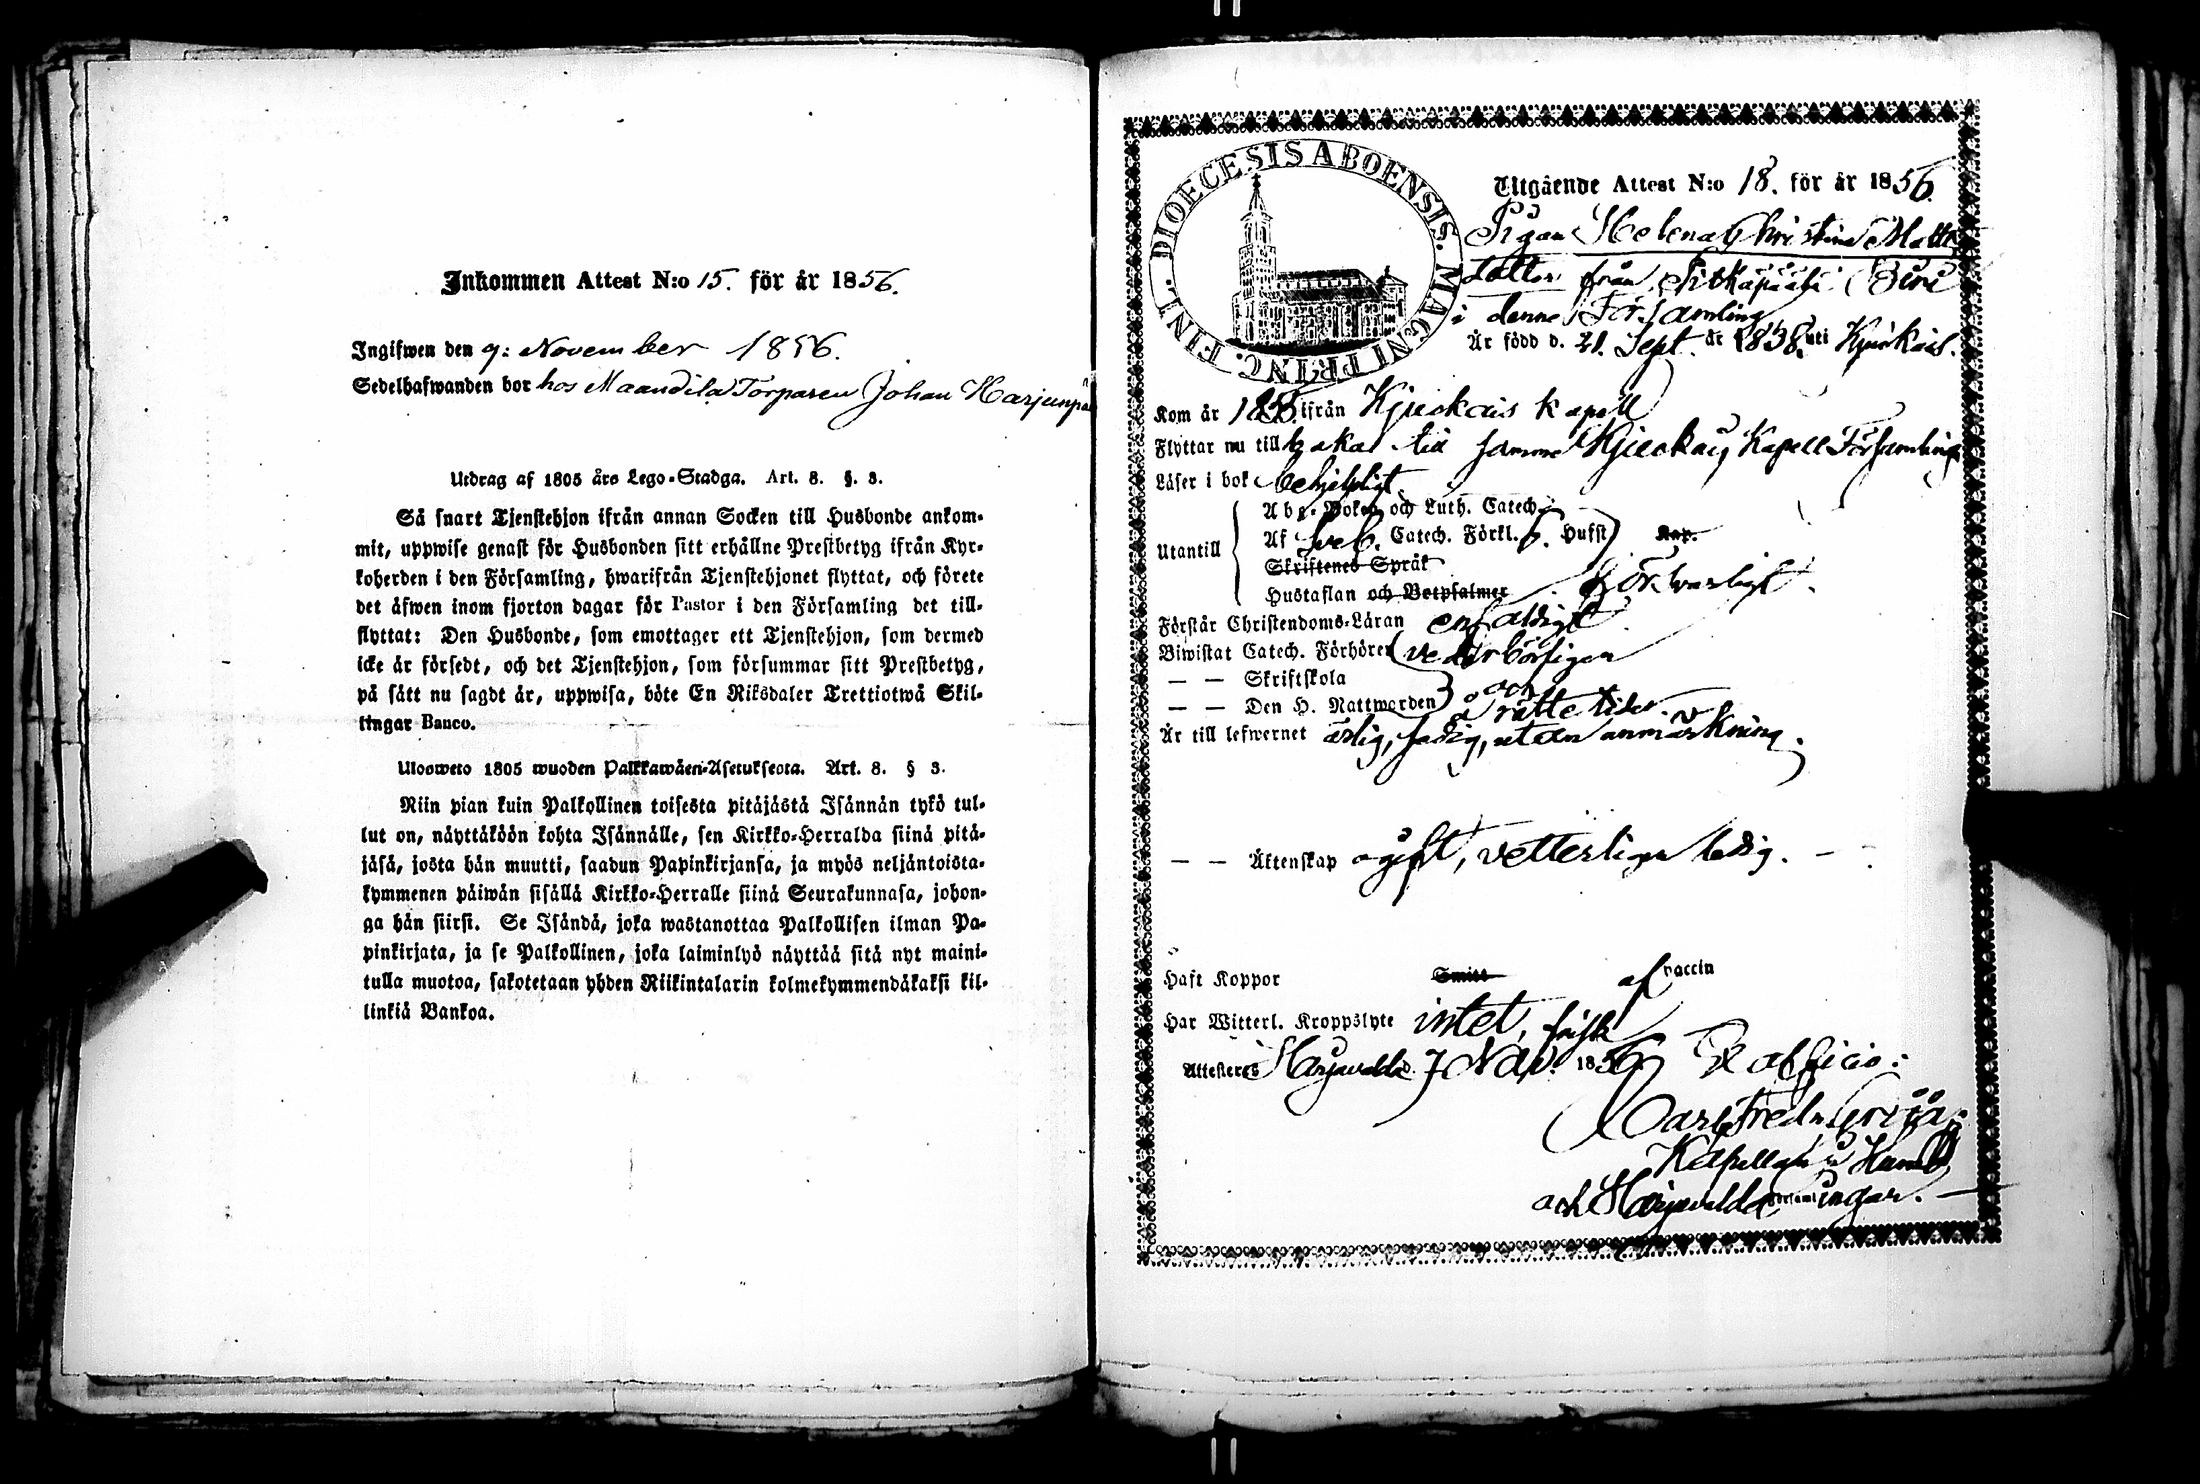 Inkommen Attest N:o 15. för år 1856.
Ingifwen den 9: November 1856.
Sedelhafwanden bor hos Maandila Torparen Johan Harjunpä
Utdrag af 1805 års Lego-Stadga. Art. 8. §. 3.
Så snart Tjenstehjon ifrån annan Socken till Husbonde ankom-
mit, uppwise genast för Husbonden sitt erhållne Prestbetyg ifrån Kyr-
koherden i den Församling, hwarifrån Tjenstehjonet flyttat, och förete
det äfwen inom fjorton dagar för Pastor i den Församling det till-
flyttat: Den Husbonde, som emottager ett Tjenstehjon, som dermed
icke är försedt, och det Tjenstehjon, som försummar sitt Prestbetyg,
på sätt nu sagdt är, uppwisa, böte En Riksdaler Trettiotwå Skil-
lingar Banco.
Ulosweto 1805 wuoden Palkkawäen-Asetuksesta. Art. 8. § 3.
Niin pian kuin Palkollinen toisesta pitäjästä Isännän tykö tul-
lut on, näyttäköön kohta Isännälle, sen Kirkko-Herralda siinä pitä-
jäsä, josta hän muutti, saadun Papinkirjansa, ja myös neljäntoista-
kymmenen päiwän sisällä Kirkko-Herralle siinä Seurakunnasa, johon-
ga hän siirsi. Se Isändä, joka wastanottaa Palkollisen ilman Pa-
pinkirjata, ja se Palkollinen, joka laiminlyö näyttää sitä nyt maini-
tulla muotoa, sakotetaan yhden Riikintalarin kolmekymmendäkaksi kil-
linkiä Bankoa.
DIOECESIS ABOENSIS. MAGNI PRINC. FINL.
Utgående Attest N:o 18. för år 1856.
Pigan Helena Christina Matts
dotter från Pitkäpäähi
i denne Församling
Är född d. 21. Sept. år 1838. uti Kjuokais.
Kom år 1855. ifrån Kjuokais kapell
Flyttar nu till baka till samma Kjuokais Kapell Församling
Läser i bok behjelpligt
Abc-Boken och Luth. Catech.
Utantill
Af Sveb. Catech. Förkl. Husst Kap.
Skriftenes Språk
Hustaflan och Botpsalmer försvarligt.
Förstår Christendoms-Läran enfaldigt
Biwistat Catech. Förhören vederbörligen
— — Skriftskola
och
— — Den H. Nattwarden å rätte tider
Är till lefwernet ärlig, sedig, utan anmärkning.
— — Äktenskap ogift, vetterligen ledig. —
Haft Koppor Smitt af vaccin
Har Witterl. Kroppslyte intet, frisk
Attesteres Harjavalda d. 7 Nov. 1856 Ex officio:
Carl Fredr.
Kapellan i
och Harjavalda Församlingar. —